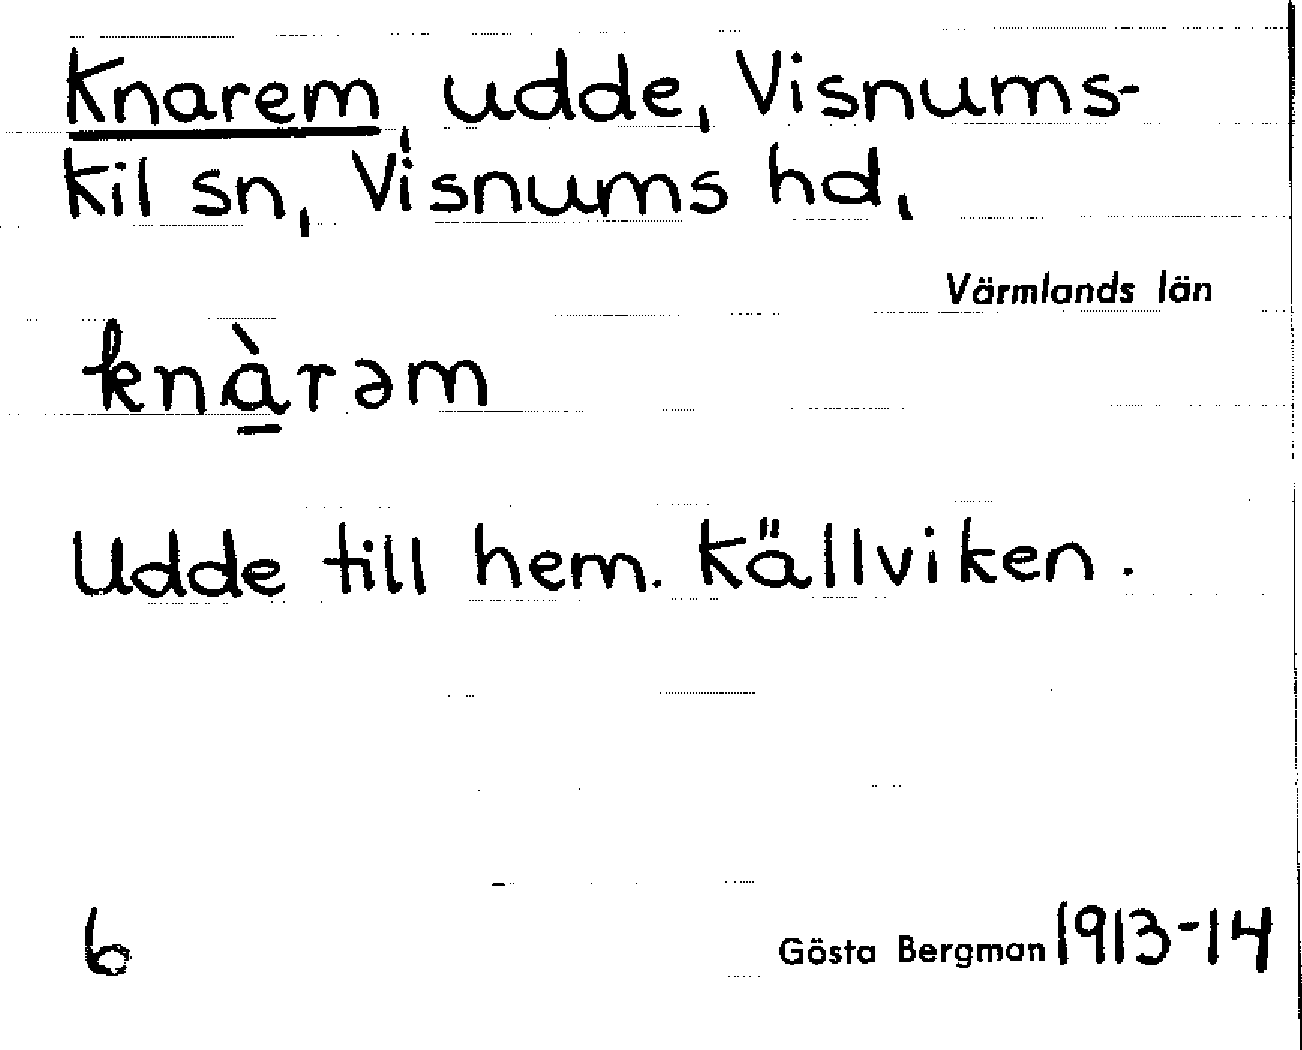 Knarem, udde, Visnums-
kil sn, Visnums hd,
Värmlands län
knà̱rəm
Udde till hem. Källviken.
6
Gösta Bergman 1913-14